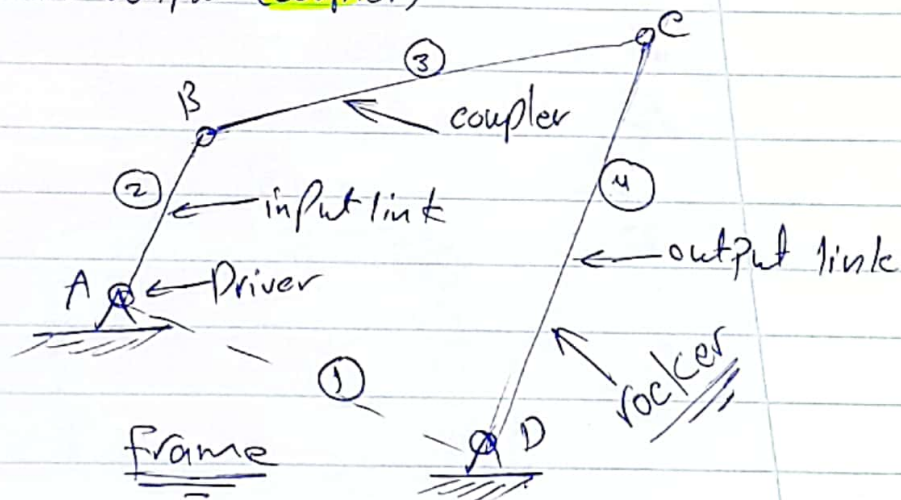 C
③
B
coupler
②
④
input link
output link
A
Driver
①
rocker
D
frame